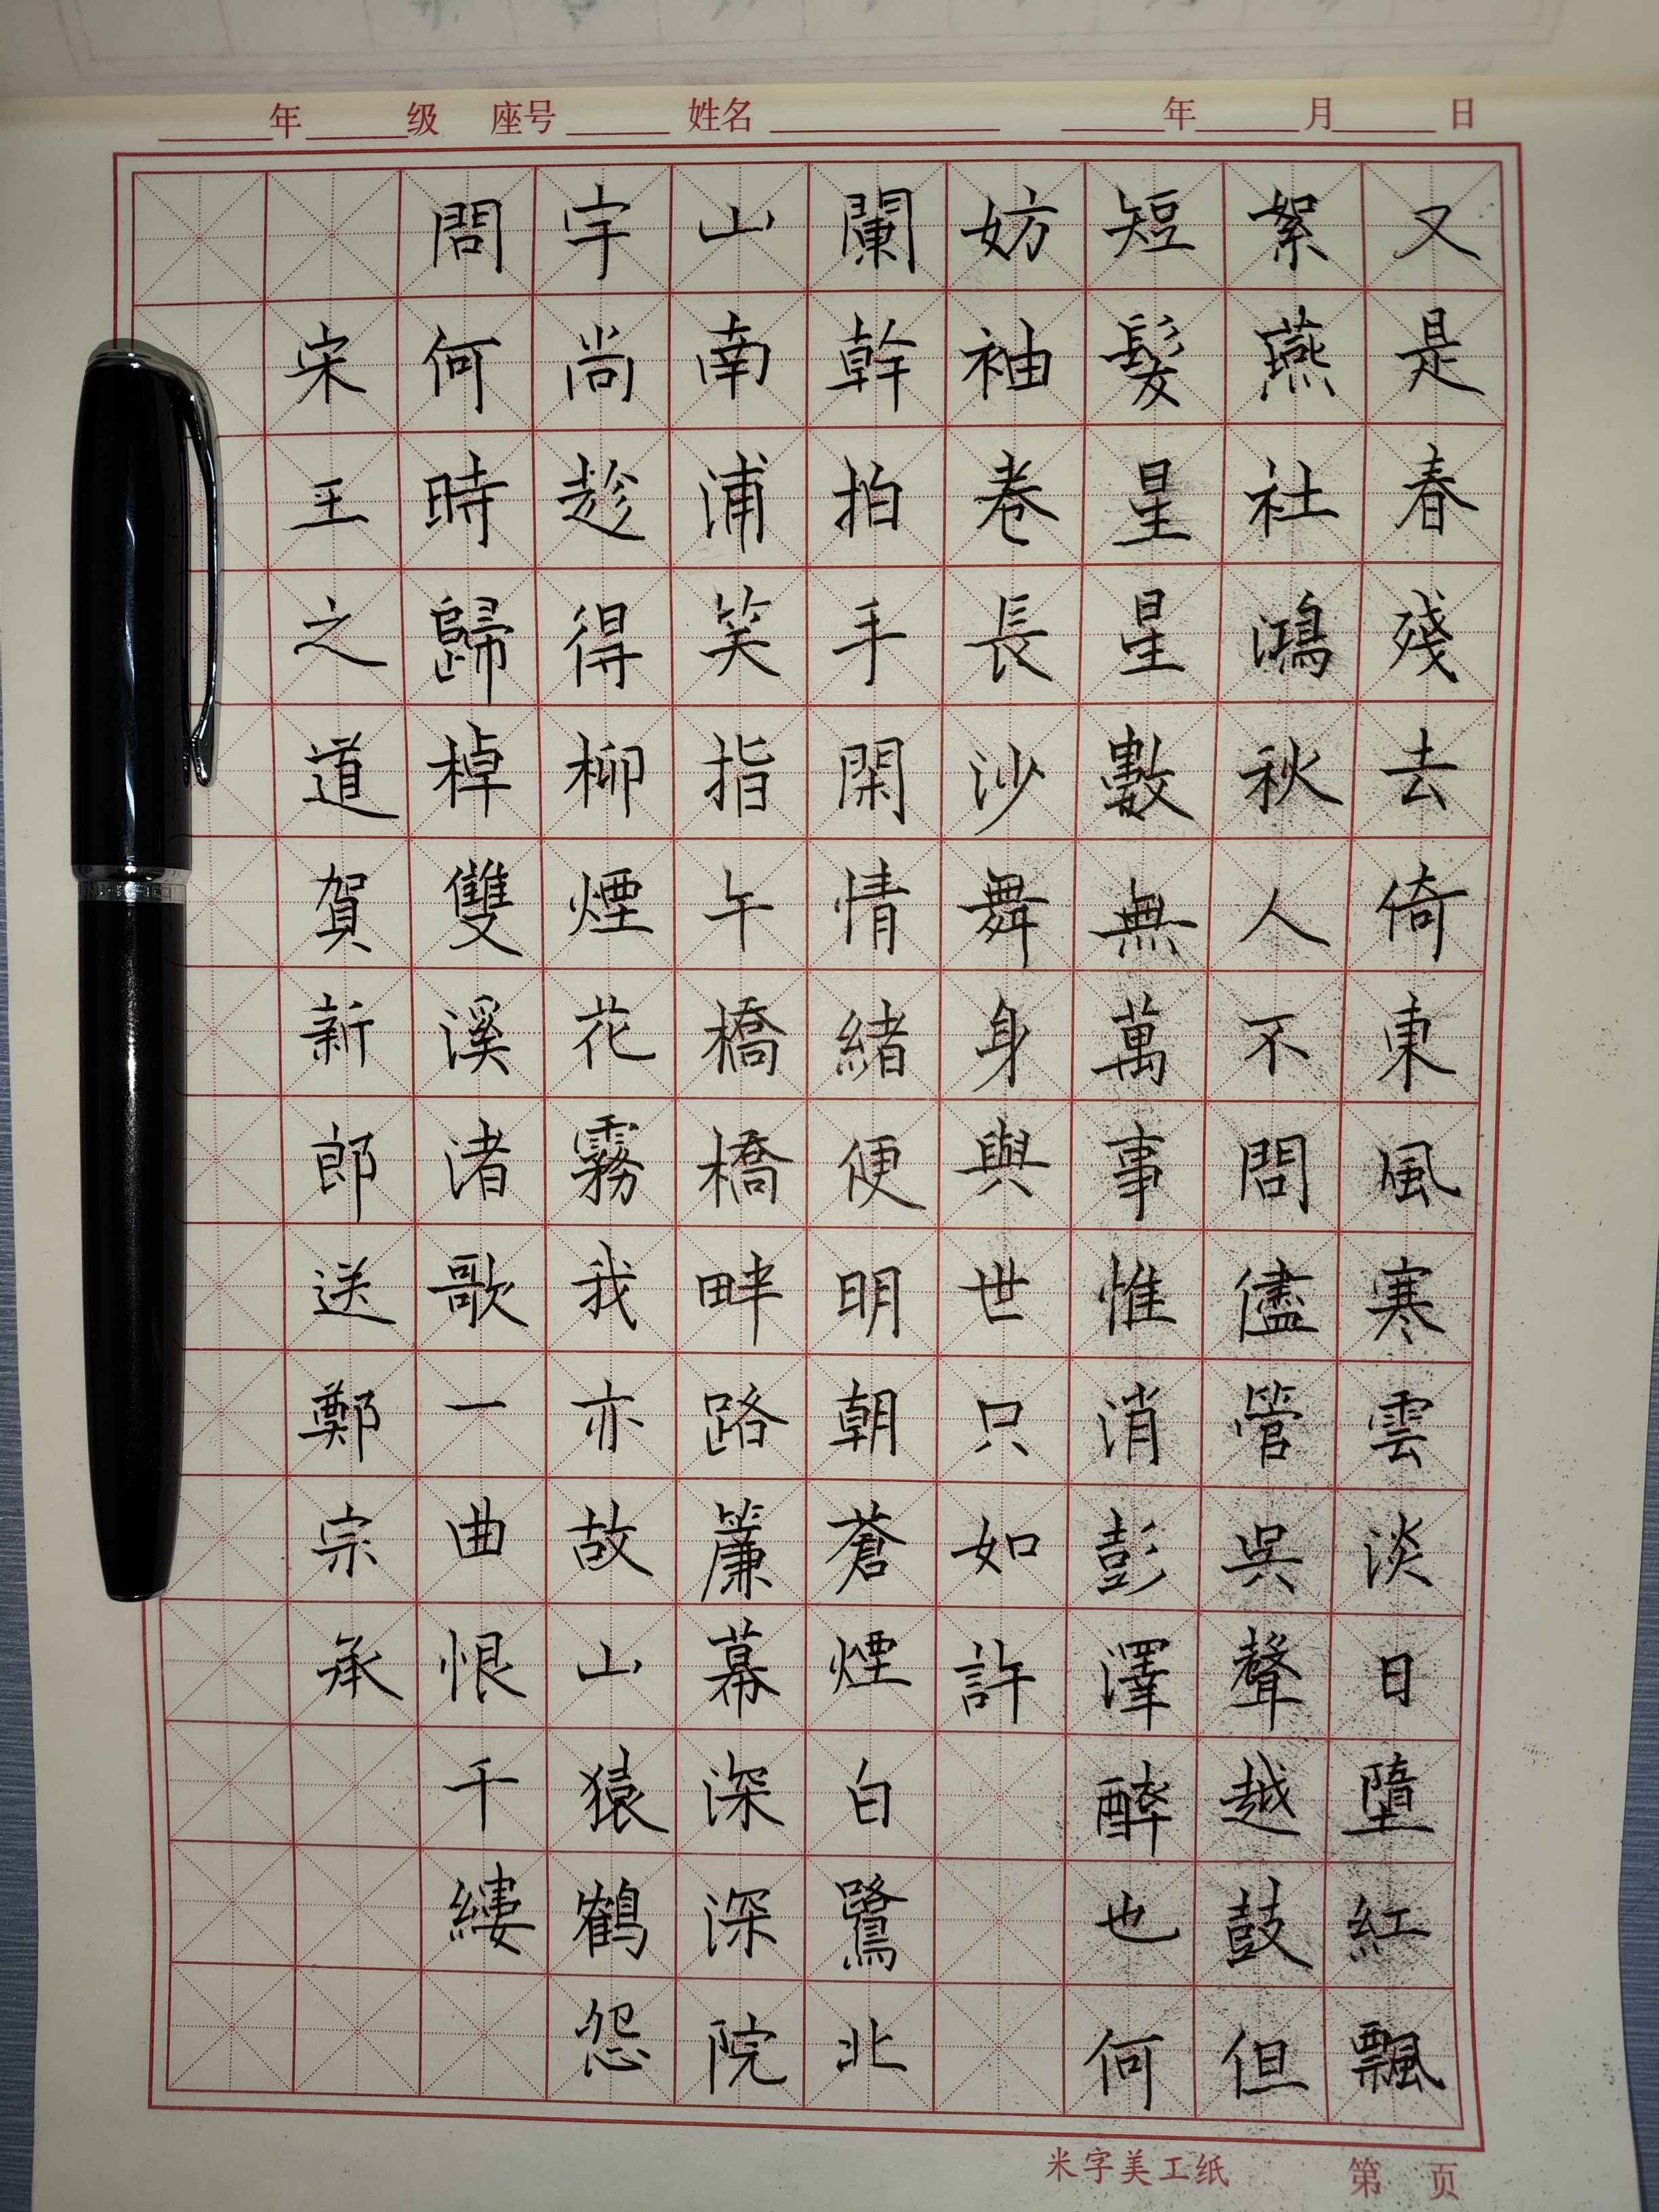 年 级 座号 姓名 年 月 日
又是春殘去倚東風寒雲淡日墮紅飄
絮燕社鴻秋人不問儘管吳聲越鼓但
短髮星星數無萬事惟消彭澤醉也何
妨袖卷長沙舞身與世只如許
闌幹拍手閑情緒便明朝蒼煙白鷺北
山南浦笑指午橋橋畔路簾幕深深院
宇尚趁得柳煙花霧我亦故山猿鶴怨
問何時歸棹雙溪渚歌一曲恨千縷
宋王之道賀新郎送鄭宗承
米字美工纸 第 页